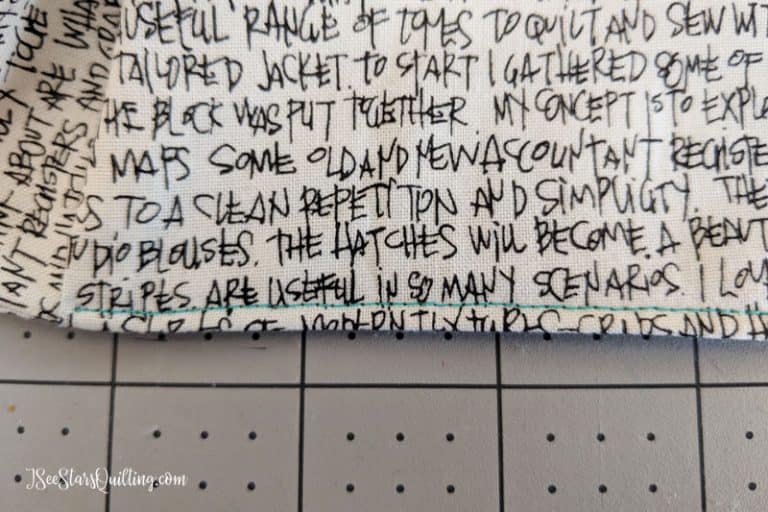 USEFUL RANGE OF TONES TO QUILT AND SEW WIT
TAILORED JACKET. TO START I GATHERED SOME OF
HE BLOCK WAS PUT TOGETHER. MY CONCEPT IS TO EXPLO
MAPS SOME OLD AND NEW ACCOUNTANT REGISTE
S TO A CLEAN REPETITION AND SIMPLICITY. THE
UDIO BLOUSES. THE HATCHES WILL BECOME A BEAUT
STRIPES ARE USEFUL IN SO MANY SCENARIOS. I LOV
GRIDS AND
ABOUT ARE WHA
ISeeStarsQuilting.com